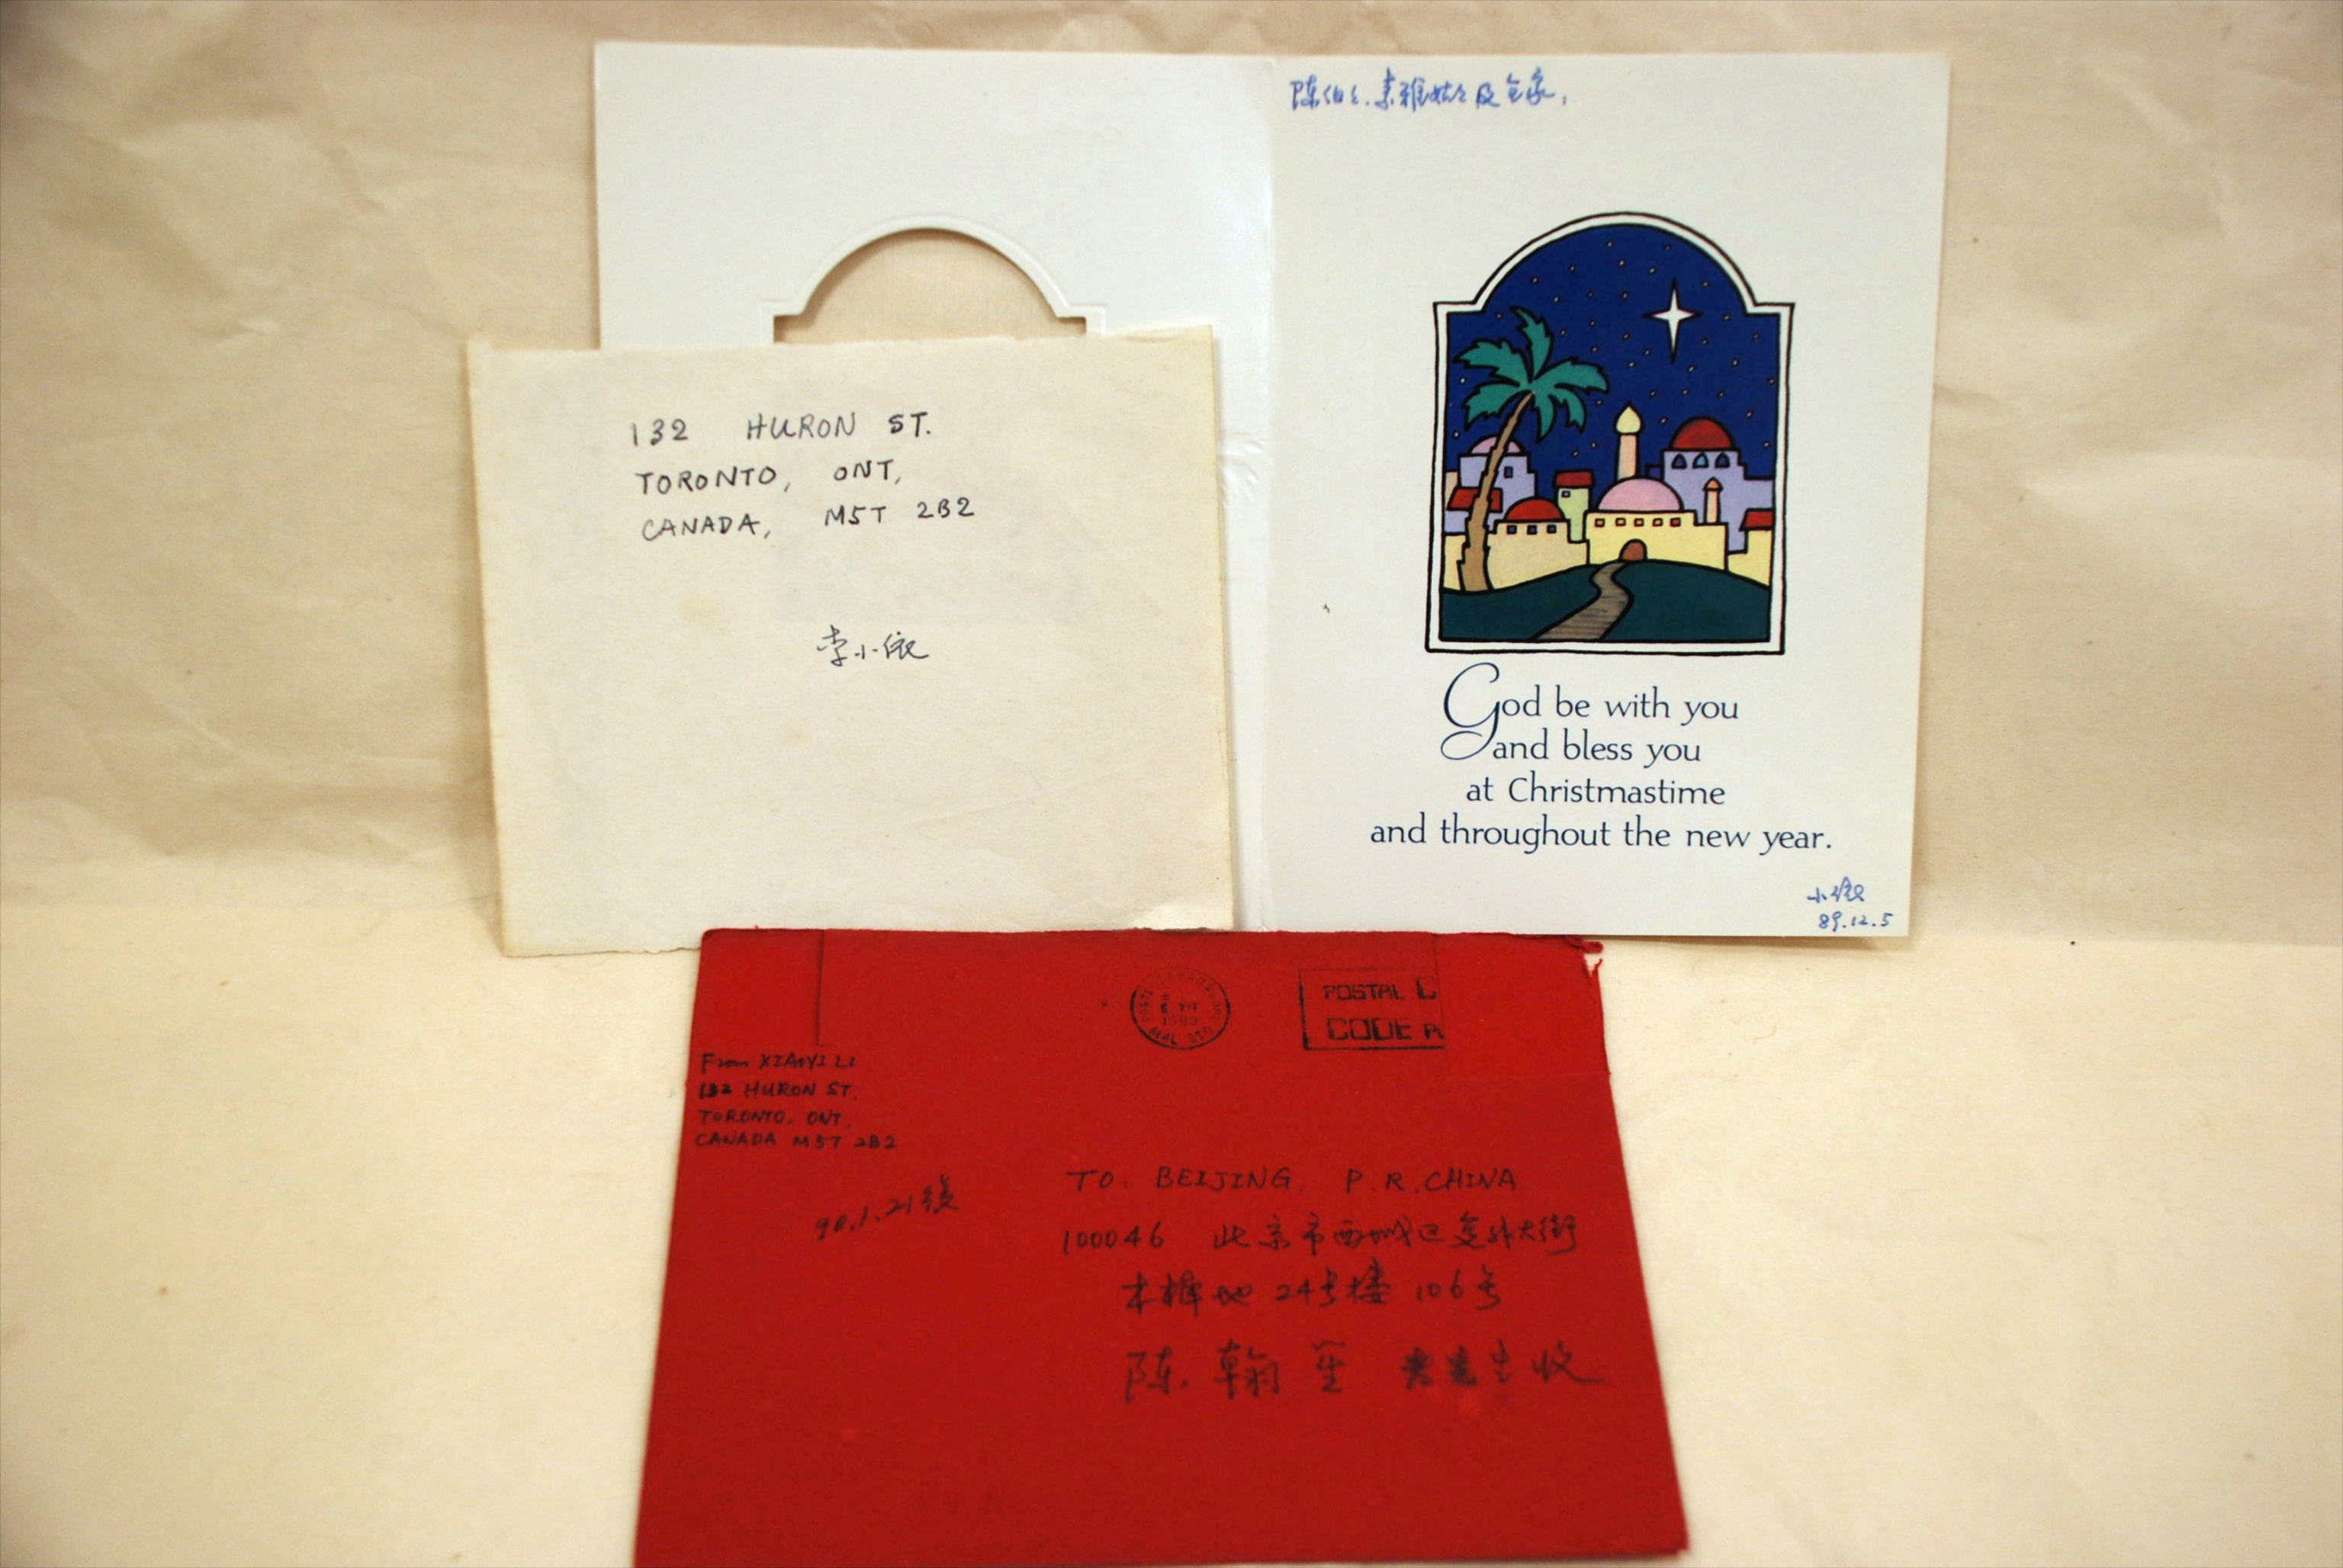 陈伯伯、素雅姑姑及全家，
God be with you
and bless you
at Christmastime
and throughout the new year.
小依
89.12.5
132 HURON ST.
TORONTO, ONT,
CANADA, M5T 2B2
李小依
1989
POSTAL
CODE
From XIAOYI LI
132 HURON ST.
TORONTO, ONT.
CANADA M5T 2B2
90.1.21
TO: BEIJING. P.R.CHINA
100046 北京市西城区复外大街
木樨地24号楼106号
陈翰笙 先生收